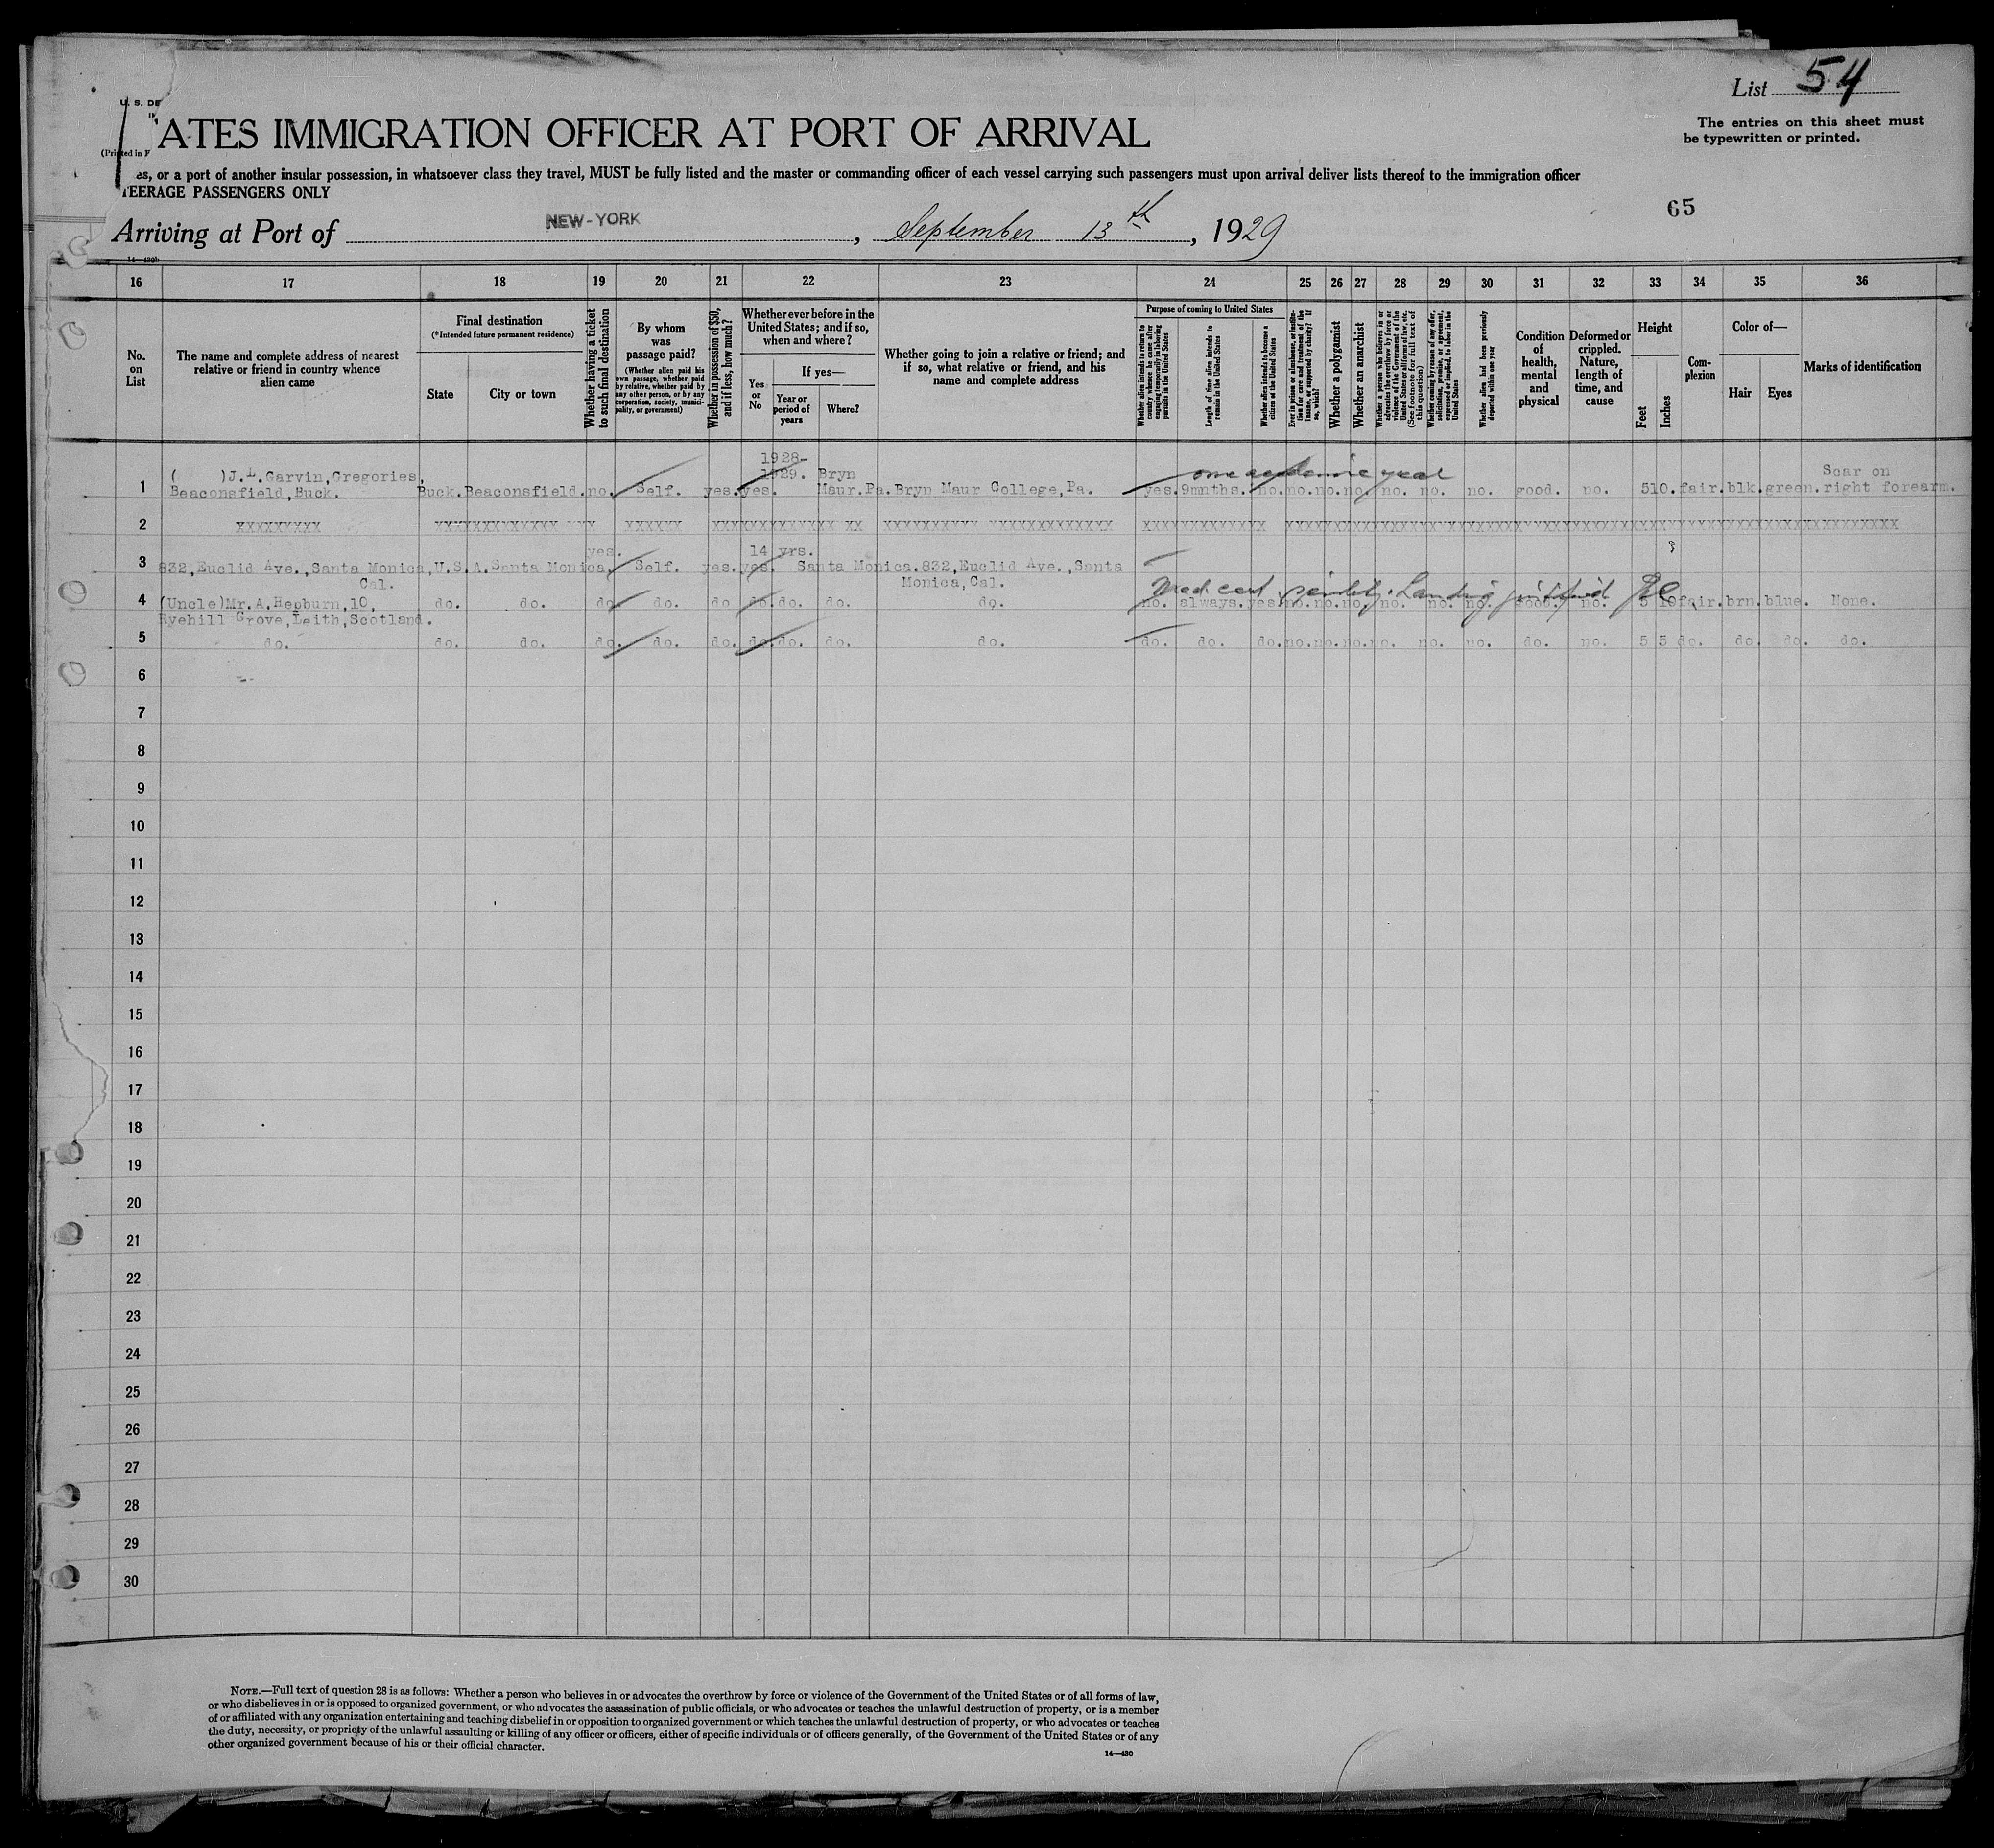 List 54
U. S. DE
The entries on this sheet must
be typewritten or printed.
ATES IMMIGRATION OFFICER AT PORT OF ARRIVAL
es, or a port of another insular possession, in whatsoever class they travel, MUST be fully listed and the master or commanding officer of each vessel carrying such passengers must upon arrival deliver lists thereof to the immigration officer
TEERAGE PASSENGERS ONLY
65
Arriving at Port of NEW-YORK, September 13th, 1929
16 17 18 19 20 21 22 23 24 25 26 27 28 29 30 31 32 33 34 35 36
No. on List
The name and complete address of nearest relative or friend in country whence alien came
Final destination
(*Intended future permanent residence)
State
City or town
Whether having a ticket to such final destination
By whom was passage paid?
(Whether alien paid his own passage, whether paid by relative, whether paid by any other person, or by any corporation, society, municipality, or government)
Whether in possession of $50, and if less, how much?
Whether ever before in the United States; and if so, when and where?
Yes or No
If yes—
Year or period of years
Where?
Whether going to join a relative or friend; and if so, what relative or friend, and his name and complete address
Purpose of coming to United States
Whether alien intends to return to country whence he came after engaging temporarily in laboring pursuits in the United States
Length of time alien intends to remain in the United States
Whether alien intends to become a citizen of the United States
Ever in prison or almshouse, or institution for care and treatment of the insane, or supported by charity? If so, which?
Whether a polygamist
Whether an anarchist
Whether a person who believes in or advocates the overthrow by force or violence of the Government of the United States or all forms of law, etc. (See footnote for full text of this question)
Whether coming by reason of any offer, solicitation, promise, or agreement, expressed or implied, to labor in the United States
Whether alien had been previously deported within one year
Condition of health, mental and physical
Deformed or crippled. Nature, length of time, and cause
Height
Feet
Inches
Complexion
Color of—
Hair
Eyes
Marks of identification
1928-
one academic year
Scar on
( )J.L.Garvin,Gregories, 1929. Bryn
1 Beaconsfield,Buck. Buck. Beaconsfield. no. Self. yes. yes. Maur.Pa. Bryn Maur College,Pa. yes. 9mnths. no. no. no. no. no. no. no. good. no. 5 10. fair. blk. green. right forearm.
2 XXXXXXXXX
yes. 14 yrs.
3 832,Euclid Ave.,Santa Monica,U.S.A. Santa Monica. Self. yes. yes. Santa Monica. 832,Euclid Ave.,Santa
Cal. Monica,Cal.
4 (Uncle)Mr.A.Hepburn,10, do. do. do. do. do do. do. do. do. no. always. yes. no. no. no. no. no. no. good. no. 5 10 fair. brn. blue. None.
Ryehill Grove,Leith,Scotland.
Landing
5 do. do. do. do. do. do. do. do. do. do. do. do. do. no. no. no. no. no. no. do. no. 5 5 do. do. do. do.
6
7
8
9
10
11
12
13
14
15
16
17
18
19
20
21
22
23
24
25
26
27
28
29
30
NOTE.—Full text of question 28 is as follows: Whether a person who believes in or advocates the overthrow by force or violence of the Government of the United States or of all forms of law,
or who disbelieves in or is opposed to organized government, or who advocates the assassination of public officials, or who advocates or teaches the unlawful destruction of property, or is a member
of or affiliated with any organization entertaining and teaching disbelief in or opposition to organized government or which teaches the unlawful destruction of property, or who advocates or teaches
the duty, necessity, or propriety of the unlawful assaulting or killing of any officer or officers, either of specific individuals or of officers generally, of the Government of the United States or of any
other organized government because of his or their official character.
14—430